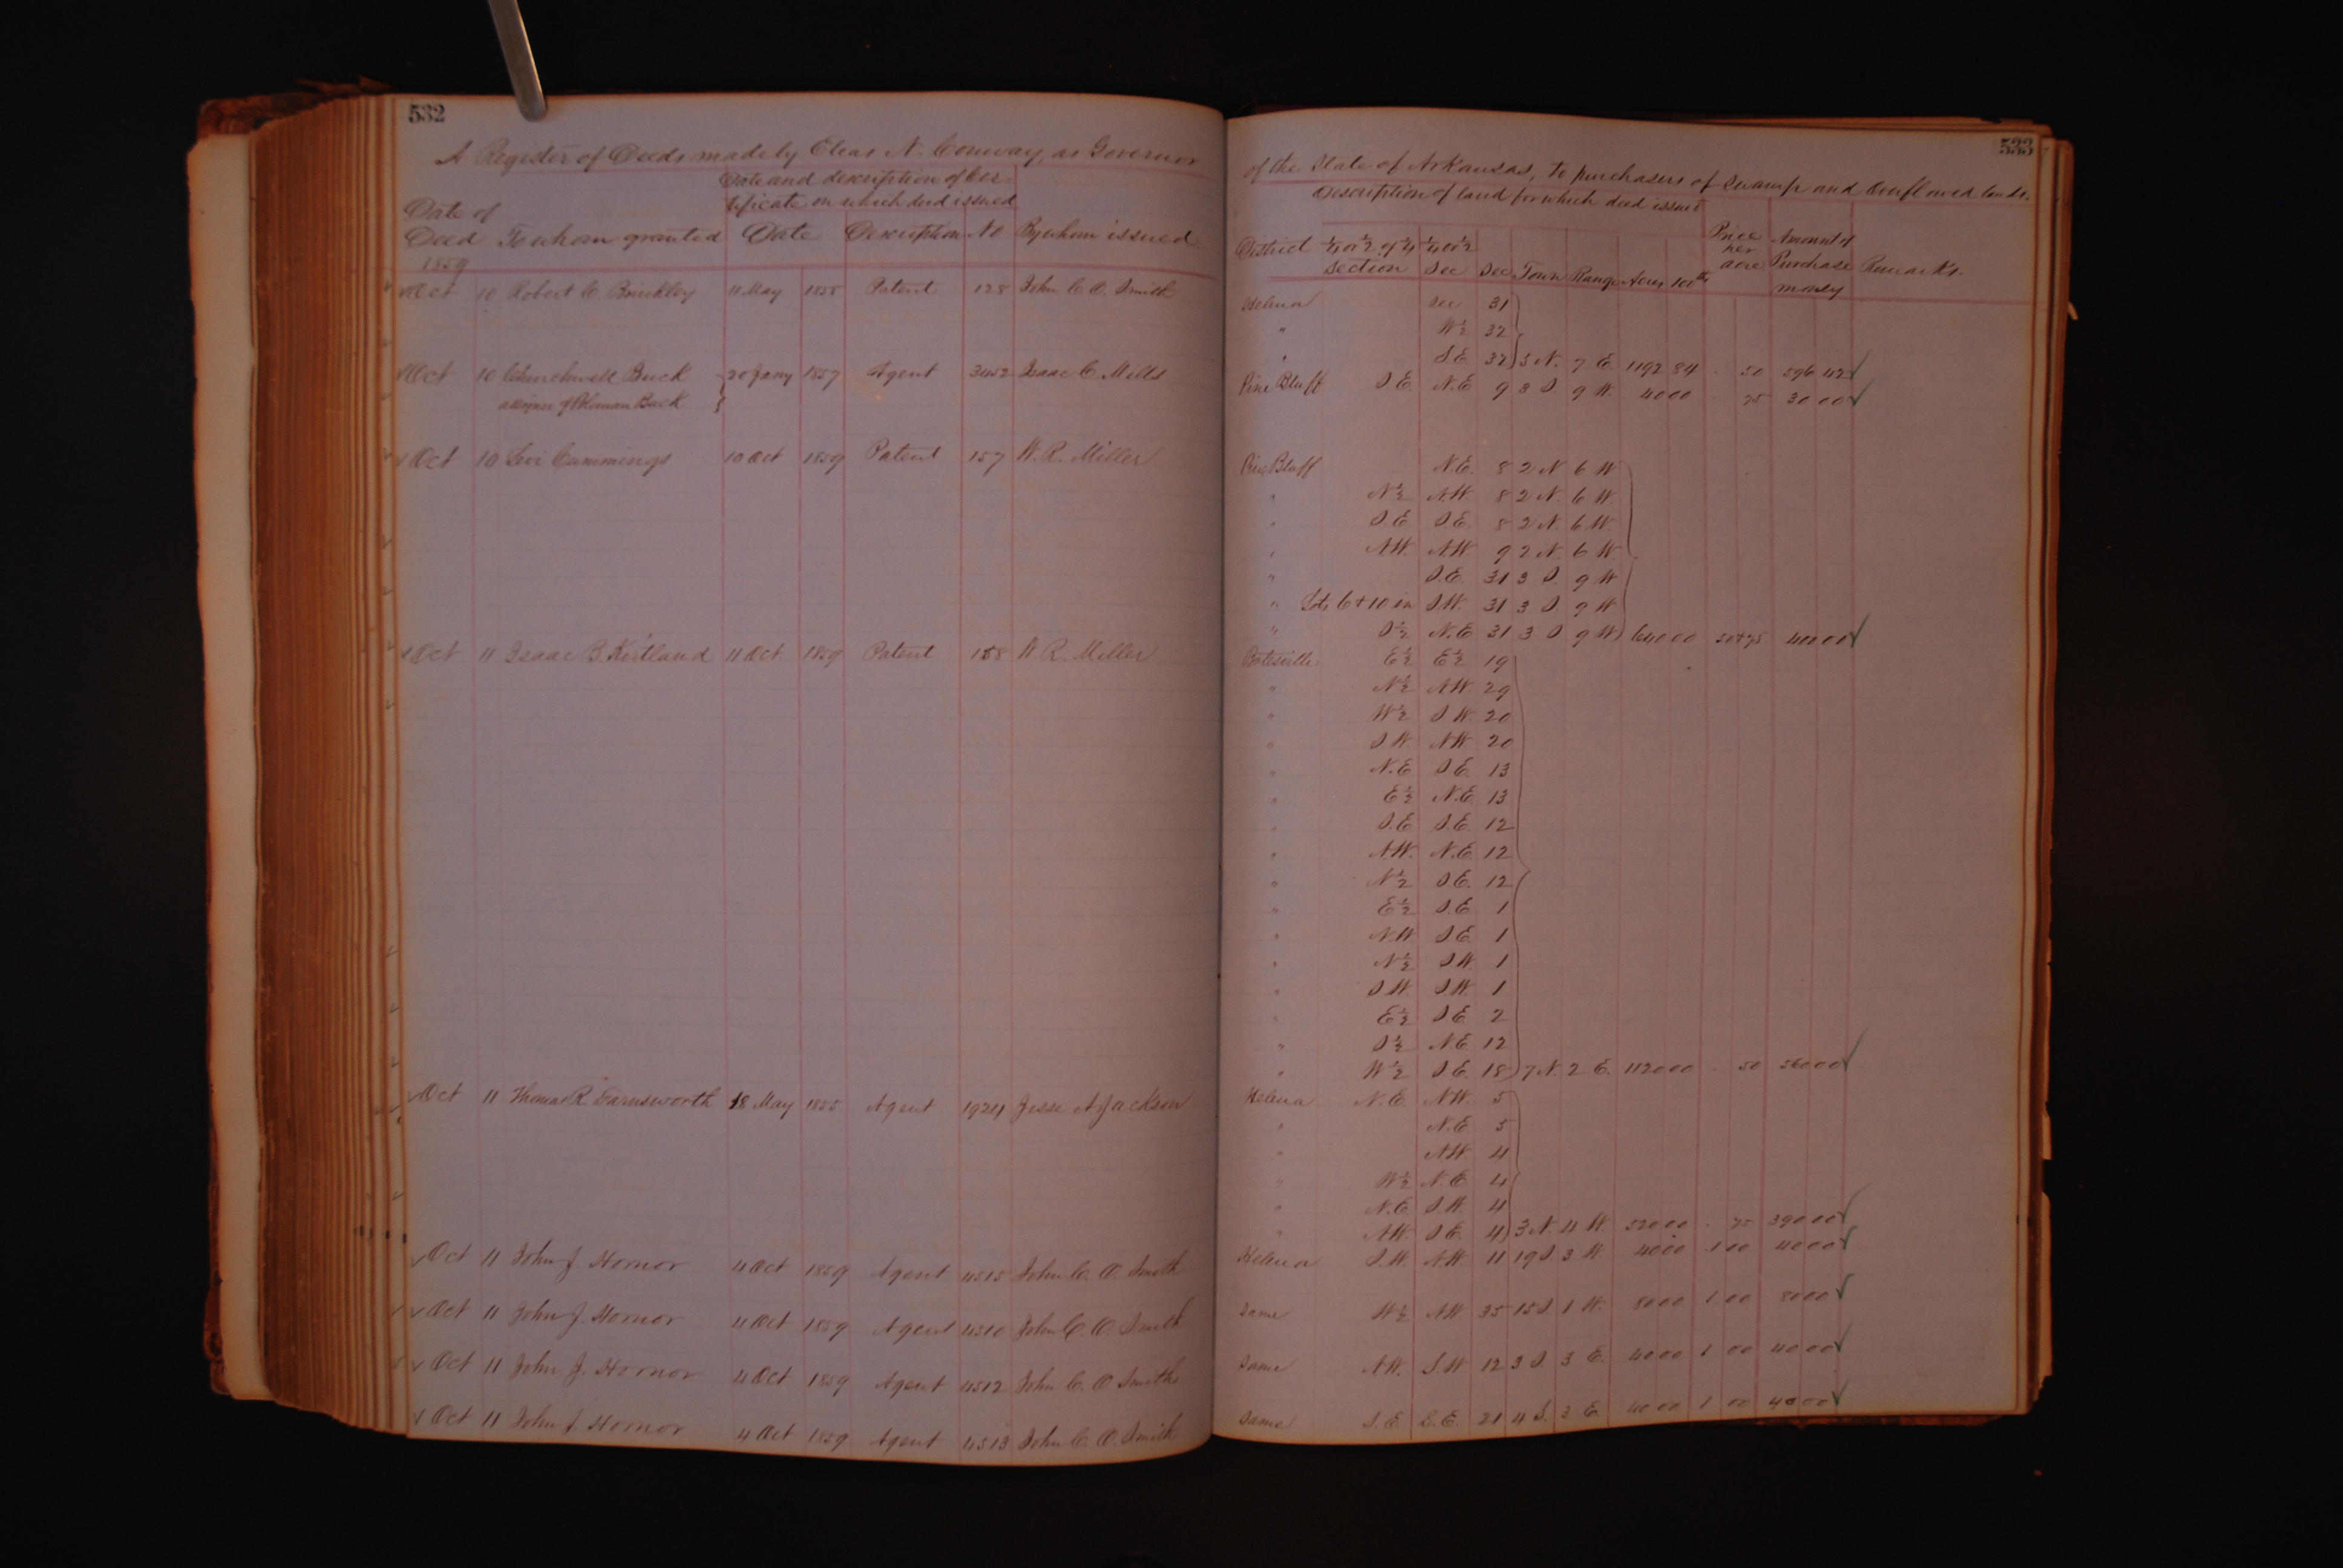 532
A Register of Deeds made by Elias N. Conway, as Governor
Date and description of Cer-
tificate on which deed issued
Date of
Deed To whom granted Date Description No By whom issued
1859
Oct 10 Robert C Brinkley 11 May 1858 Patent 128 John C. O. Smith
Oct 10 Churchwell Buck 20 Jany 1857 Agent 3452 Isaac C. Mills
assignee of Buck
Oct 10 Levi Cummings 10 Oct 1859 Patent 157 W. R. Miller
Oct 11 Isaac B. Kirtland 11 Oct 1859 Patent 158 W. R. Miller
Oct 11 Thomas R. Farnsworth 18 May 1855 Agent 1924 Jesse A Jackson
Oct 11 John J Hornor 4 Oct 1859 Agent 4515 John C. O. Smith
Oct 11 John J. Hornor 4 Oct 1859 Agent 4510 John C. O Smith
Oct 11 John J. Hornor 4 Oct 1859 Agent 4512 John C. O Smith
Oct 11 John J. Hornor 4 Oct 1859 Agent 4513 John C. O. Smith
533
of the State of Arkansas, to purchasers of Swamp and Overflowed lands.
Description of land for which deed issued
District ¼ or ½ of ¼ ¼ or ½ Price per acre Amount of
Section Sec Sec Town Range Acres 100ths Purchase money Remarks.
Helena Sec 31
" W½ 32
" S.E. 32 5 N. 7 E. 1192 84 50 596 42
Pine Bluff S.E. N.E 9 3 S. 9 W. 40 00 75 30 00
Pine Bluff N.E. 8 2 N 6 W
" N½ N.W. 8 2 N. 6 W.
" S.E. S.E. 8 2 N. 6 W.
" N.W. N.W. 9 2 N. 6 W
" S.E. 31 3 S. 9 W
" Lots 6 + 10 in S.W. 31 3 S. 9 W
" S½ N.E 31 3 S 9 W 640 00 50+75 400 00
Batesville E½ E½ 19
" N½ N.W. 29
" W½ S W. 20
" S W. N W. 20
" N.E S E. 13
" E½ N.E. 13
" S.E S E. 12
" N.W. N.E 12
" N½ S E. 12
" E½ S.E 1
" N.W S E 1
" N½ S W. 1
" S W. S W. 1
" E½ S E 2
" S½ N.E 12
" W½ S.E. 18 7 N. 2 E. 1120 00 50 560 00
Helena N.E. N.W. 5
" N.E 5
" N.W. 4
" W½ N.E. 4
" N.E. S.W. 4
" N.W. S.E. 4 3 N. 4 W. 520 00 75 390 00
Helena S.W. N.W. 11 19 S 3 W. 40 00 1 00 40 00
Same W½ N.W 35 15 S. 1 W. 80 00 1 00 80 00
Same N.W. S.W 12 3 S. 3 E. 40 00 1 00 40 00
Same S.E S.E. 21 4 S. 3 E. 40 00 1 00 40 00